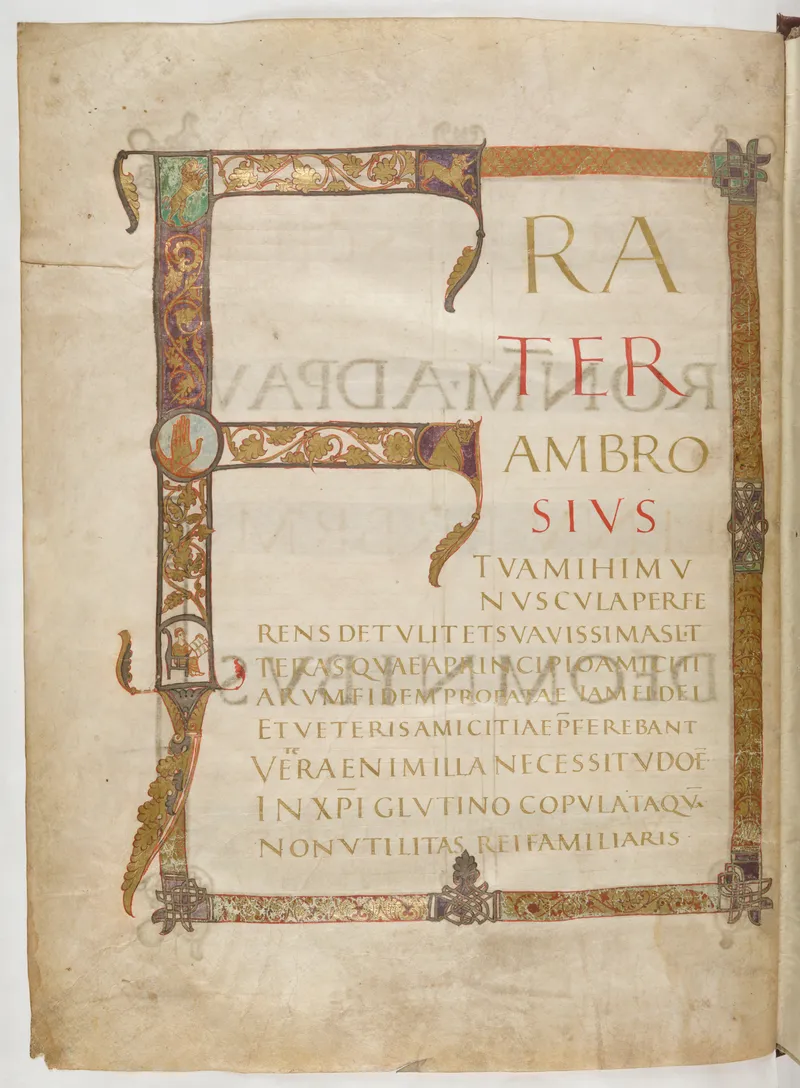 FRA
TER
AMBRO
SIVS
TVAMIHIMV
NVSCVLAPERFE
RENS DETVLITETSVAVISSIMASLIT
TERASQVAEAPRINCIPIOAMICITI
ARVMFIDEMPROBATAE IAMFIDEI
ETVETERISAMICITIAEP̄FEREBANT
te
VĒRAENIMILLA NECESSITVDOĒ·
INXP̄IGLVTINO COPVLATAQVĀ
NONVTILITAS REIFAMILIARIS